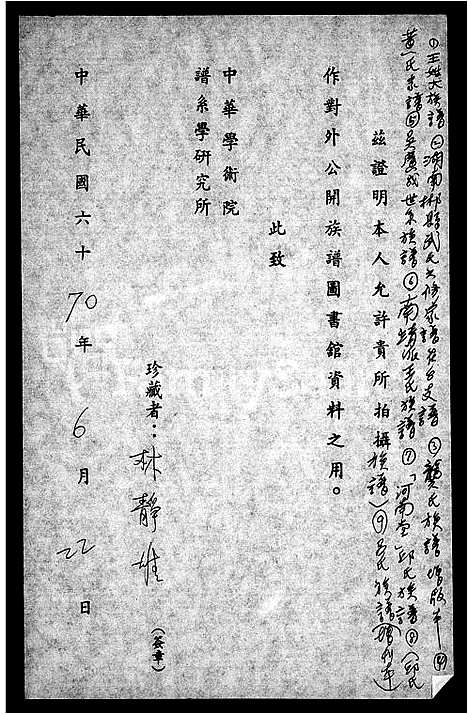 ①王姓大族譜②湖南郴縣武氏六修家譜③龔氏族譜增版本④
黃氏家譜⑤吳廣茂世系族譜⑥南靖派王氏族譜⑦「河南堂」邱氏族譜⑧(邱氏
族譜)⑨呂氏族譜(增刊本)
茲證明本人允許貴所拍攝
作對外公開族譜圖書館資料之用。
此致
中華學術院
譜系學研究所
珍藏者:林靜雄(簽章)
中華民國六十70年6月22日